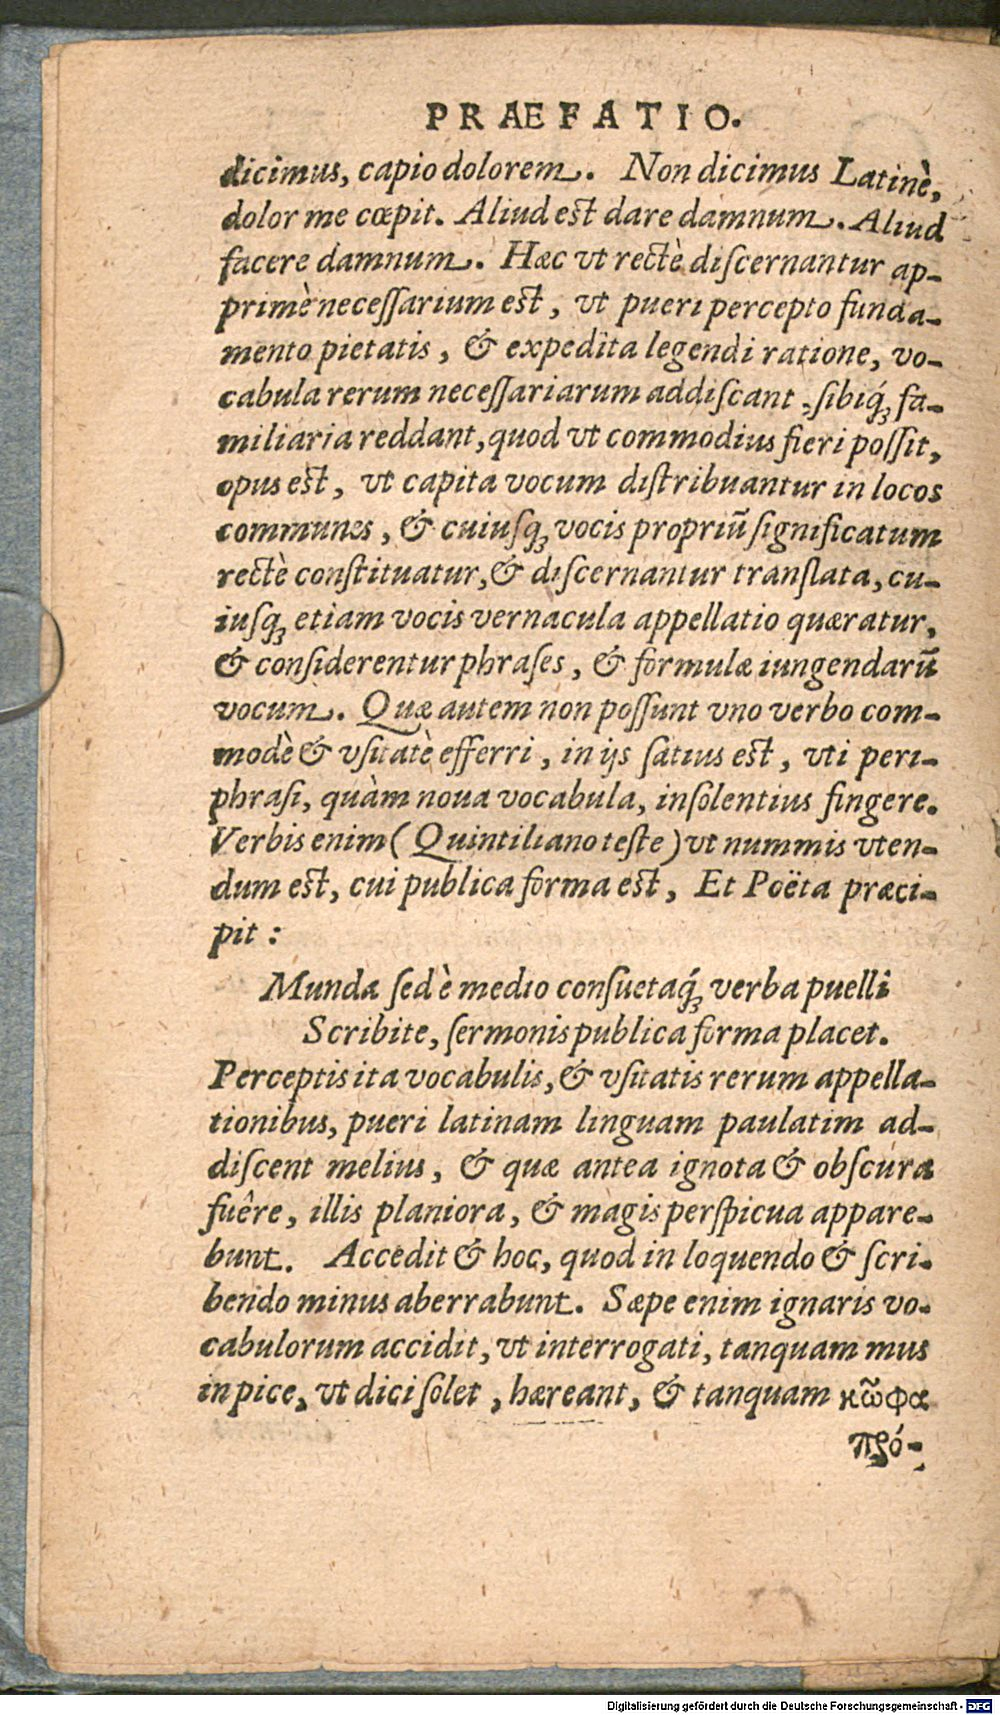 PRAEFATIO.
dicimus, capio dolorem. Non dicimus Latinè,
dolor me cœpit. Aliud est dare damnum. Aliud
facere damnum. Hæc vt rectè diſcernantur ap-
primè neceſſarium est, vt pueri percepto funda-
mento pietatis, & expedita legendi ratione, vo-
cabula rerum neceſſariarum addiſcant, ſibiq́ꝫ fa-
miliaria reddant, quod vt commodius fieri poſſit,
opus est, vt capita vocum diſtribuantur in locos
communes, & cuiuſqꝫ vocis propriū ſignificatum
rectè conſtituatur, & diſcernantur tranſlata, cu-
iusqꝫ etiam vocis vernacula appellatio quæratur,
& conſiderentur phraſes, & formulæ iungendarū
vocum. Quæ autem non poſſunt vno verbo com-
modè & vſitatè efferri, in ijs ſatius est, vti peri-
phraſi, quàm noua vocabula, inſolentius fingere.
Verbis enim (Quintiliano teſte) vt nummis vten-
dum est, cui publica forma est, Et Poëta præci-
pit:
Munda ſed è medio conſuetaq́ꝫ verba puelli
Scribite, ſermonis publica forma placet.
Perceptis ita vocabulis, & vſitatis rerum appella-
tionibus, pueri latinam linguam paulatim ad-
diſcent melius, & quæ antea ignota & obſcura
fuêre, illis planiora, & magis perſpicua appare-
bunt. Accedit & hoc, quod in loquendo & ſcri-
bendo minus aberrabunt. Sæpe enim ignaris vo-
cabulorum accidit, vt interrogati, tanquam mus
in pice, vt dici ſolet, hæreant, & tanquam κῶφα
πρό-
Digitalisierung gefördert durch die Deutsche Forschungsgemeinschaft - DFG